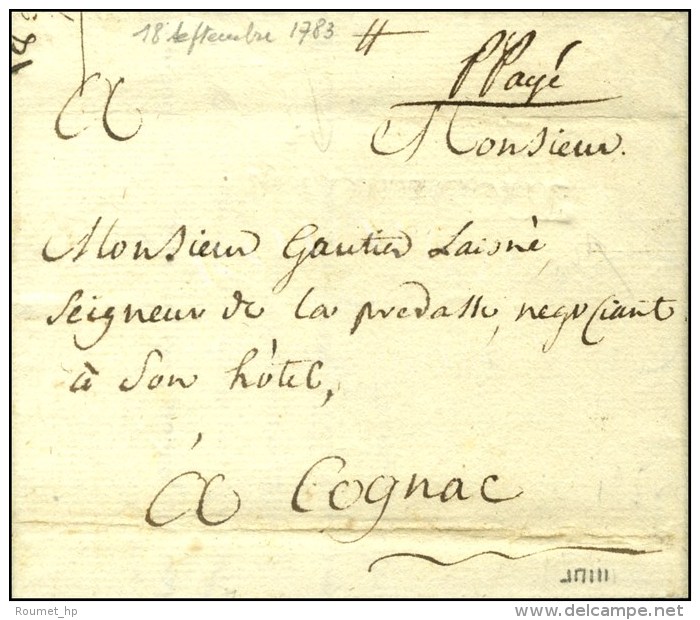 18 Septembre 1783
PPayé
A Monsieur
Monsieur Gautier Laisné
Seigneur de la predasse, negociant
à Son hôtel,
A Cognac
Roumet_hp
www.delcampe.net